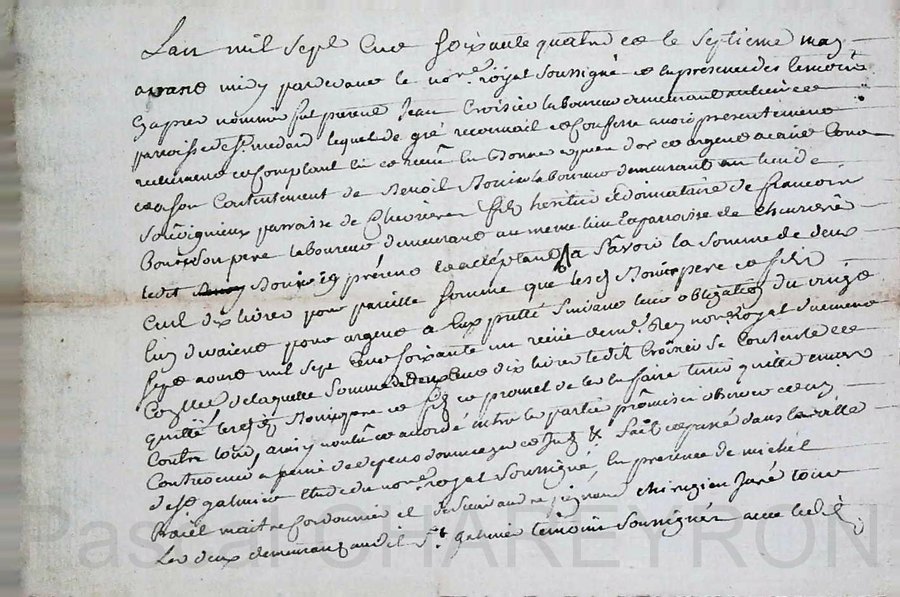 Lan mil sept Cent soixante quatre et le septieme may
avant midy pardevant le notre royal soussigné et en presence des temoins
cy apres nommes fut present Jean Croisier laboureur demeurant au lieu et
parroisse de St medard lequel de gré reconnoit et Confesse avoir presentement
reellement et Comptant eu et receu En Bonne especes d'or et argent ayant Cour
et a son Contentement de Benoit laboureur demeurant au lieu de
Souvignieux parroisse de Chevrieres fils heritier et donnataire de francois
son pere laboureur demeurant au meme lieu et parroisse de Chevriere
ledit present et acceptant a Sçavoir la somme de deux
Cent dix livres pour pareille somme que lesd pere et fils
luy devoient pour argent a Eux pretté suivant leur obligation du vingt
sept aoust mil sept Cent soixante un receue de me notre Royal
de laquelle somme de deux Cent dix livres ledit Croisier se Contente et
quitte lesd pere et fils et promet de les en faire tenir quitte envers et
Contre tous, ainsy voulu et accordé entre les parties promis obs et
a peine de depens dommages et Int & fait et passé dans la ville
de St galmier Etude du notre royal soussigné, En presence de michel
maitre Cordonnier et de sieur andre chirugien Juré tous
Les deux demeurant audit St galmier temoins soussignés avec ledit
Pascal CHAREYRON